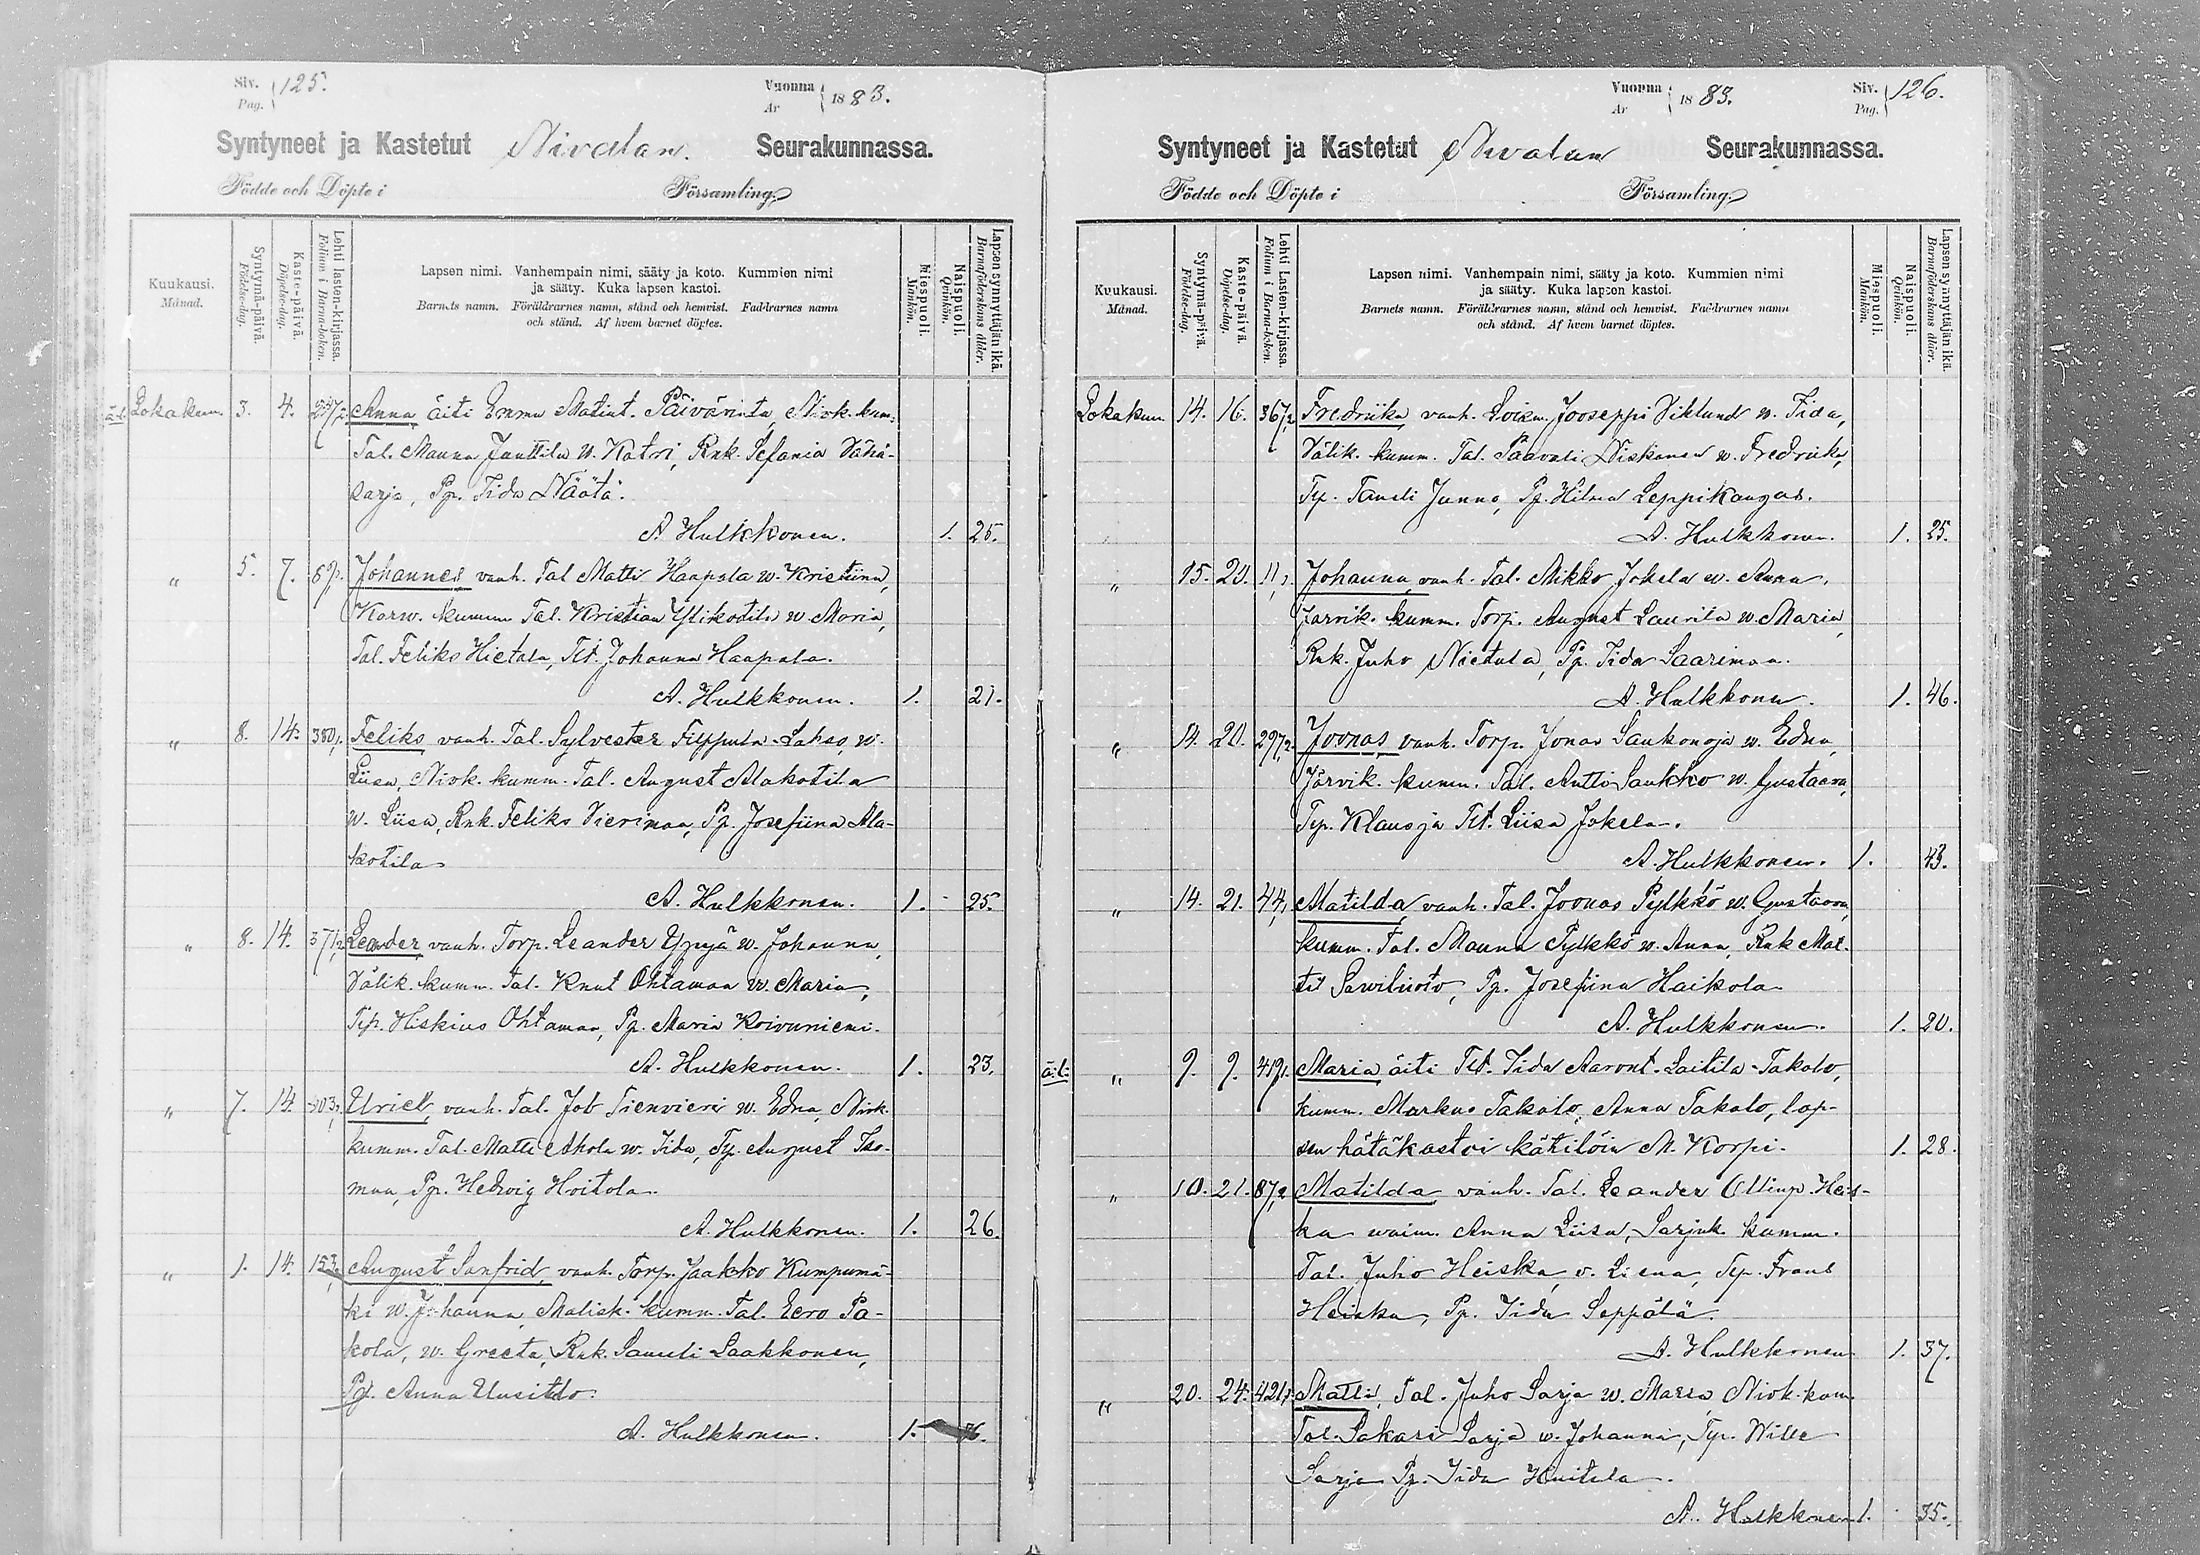 Siv. Pag. 125.
Vuonna År 1883.
Syntyneet ja Kastetut Nivalan. Seurakunnassa.
Födde och Döpte i Församling.
Kuukausi. Månad.
Syntymä-päivä. Födelse-dag.
Kaste-päivä. Döpelse-dag.
Lehti lasten-kirjassa. Folium i Barna-boken.
Lapsen nimi. Vanhempain nimi, sääty ja koto. Kummien nimi
ja sääty. Kuka lapsen kastoi.
Barnets namn. Föräldrarnes namn, stånd och hemvist. Faddrarnes namn
och stånd. Af hvem barnet döptes.
Miespuoli. Mankön.
Naispuoli. Qvinkön.
Lapsen synnyttäjän ikä. Barnaföderskans ålder.
ä.l. Lokakuu. 3. 4. Anna, äiti Emma Matint. Päivärinta, Nivk. kum.
Tal. Manna Janttila w. Katri, Rnk. Sefania Vähä-
sarja, Pp. Iida Näätä.
A. Hulkkonen. 1. 25.
" 5. 7. Johannes vanh. Tal Matti Haapala w. Kristiina,
Karw. kumm Tal. Kristian Ylikotila w. Maria,
Tal. Feliks Hietala, Tlt. Johanna Haapala.
A. Hulkkonen. 1. 21.
" 8. 14. 380,1. Feliks vanh. Tal. Sylvester Filppula-Lakso, w.
Liisa, Nivk. kumm. Tal. August Alakotila
w. Liisa, Rnk. Feliks Vierimaa, Pp. Josefiina Ala-
kotila
A. Hulkkonen. 1. 25.
" 8. 14. 371,2 Leander, vanh. Torp. Leander Yppyä w. Johanna,
Välik. kumm. Tal. Knut Ohtamaa w. Maria,
Tp. Hiskias Ohtamaa, Pp. Maria Koivuniemi.
A. Hulkkonen. 1. 23.
" 7. 14. Uriel, vanh. Tal. Job Tienvieri w. Edna, Nivk.
kumm. Tal. Matti Ahola w. Iida, Tp. August Iso-
maa, Pp. Hedvig Hoitola.
A. Hulkkonen. 1. 26.
" 1. 14. 153, August Sanfrid, vanh. Torp. Jaakko Kumpumä-
ki w. Johanna, Malisk. kumm. Tal. Eero Pa-
kola, w. Greeta, Rnk. Samuli Laakkonen,
Pp. Anna Uusitalo.
A. Hulkkonen. 1.
Vuonna År 1883.
Siv. Pag. 126.
Syntyneet ja Kastetut Nivalan Seurakunnassa.
Födde och Döpte i Församling.
Kuukausi. Månad.
Syntymä-päivä. Födelse-dag.
Kaste-päivä. Döpelse-dag.
Lehti Lasten-kirjassa. Folium i Barna-boken.
Lapsen nimi. Vanhempain nimi, sääty ja koto. Kummien nimi
ja sääty. Kuka lapsen kastoi.
Barnets namn. Föräldrarnes namn, stånd och hemvist. Faddrarnes namn
och stånd. Af hvem barnet döptes.
Miespuoli. Mankön.
Naispuoli. Qvinkön.
Lapsen synnyttäjän ikä. Barnaföderskans ålder.
Lokakuu 14. 16. 367,2 Fredriika, vanh. Loism. Jooseppi Viklund w. Iida,
Välik. kumm. Tal. Paavali Niskanen w. Fredriika,
Tp. Taneli Junno, Pp. Hilma Leppikangas.
A. Hulkkonen. 1. 25.
" 15. 20. 11,1. Johanna, vanh. Tal. Mikko Jokela w. Anna,
Jarvik. kumm. Torp. August Laurila w. Maria,
Rnk. Juho Nietula, Pp. Iida Saarimaa.
A. Hulkkonen. 1. 46.
" 14. 20. 297,2. Joonas, vanh. Torp. Jonas Saukonoja w. Edna,
Järvik. kumm. Tal. Antti Saukko w. Gustaava,
Tp. Klaus ja Tlt. Liisa Jokela.
A. Hulkkonen. 1. 43.
" 14. 21. 44,1 Matilda, vanh. Tal. Joonas Pylkkö w. Gustaava,
kumm. Tal. Manna Pylkkö w. Anna, Rnk Mat-
ti Sawiluoto, Pp. Josefiina Haikola
A. Hulkkonen. 1. 20.
ä.l. " 9. 9. 419,1. Maria, äiti Tlt. Iida Aaront. Laitila-Takalo,
kumm. Markus Takalo, Anna Takalo, lap-
sen hätäkastoi kätilöin M. Korpi. 1. 28.
" 10. 21. 87,2 Matilda vanh. Tal. Leander Ollinp. Heis-
ka waim. Anna Liisa, Sarjak. kumm.
Tal. Juho Heiska, v. Liena, Tp. Frans
Heiska, Pp. Iida Seppälä.
A. Hulkkonen 1. 37.
" 20. 24. 421,1. Matti, Tal. Juho Sarja w. Maria, Nivk. kum.
Tal. Sakari Sarja w. Johanna, Tp. Wille
Sarja Pp. Iida Huitula.
A. Hulkkonen 1. 35.